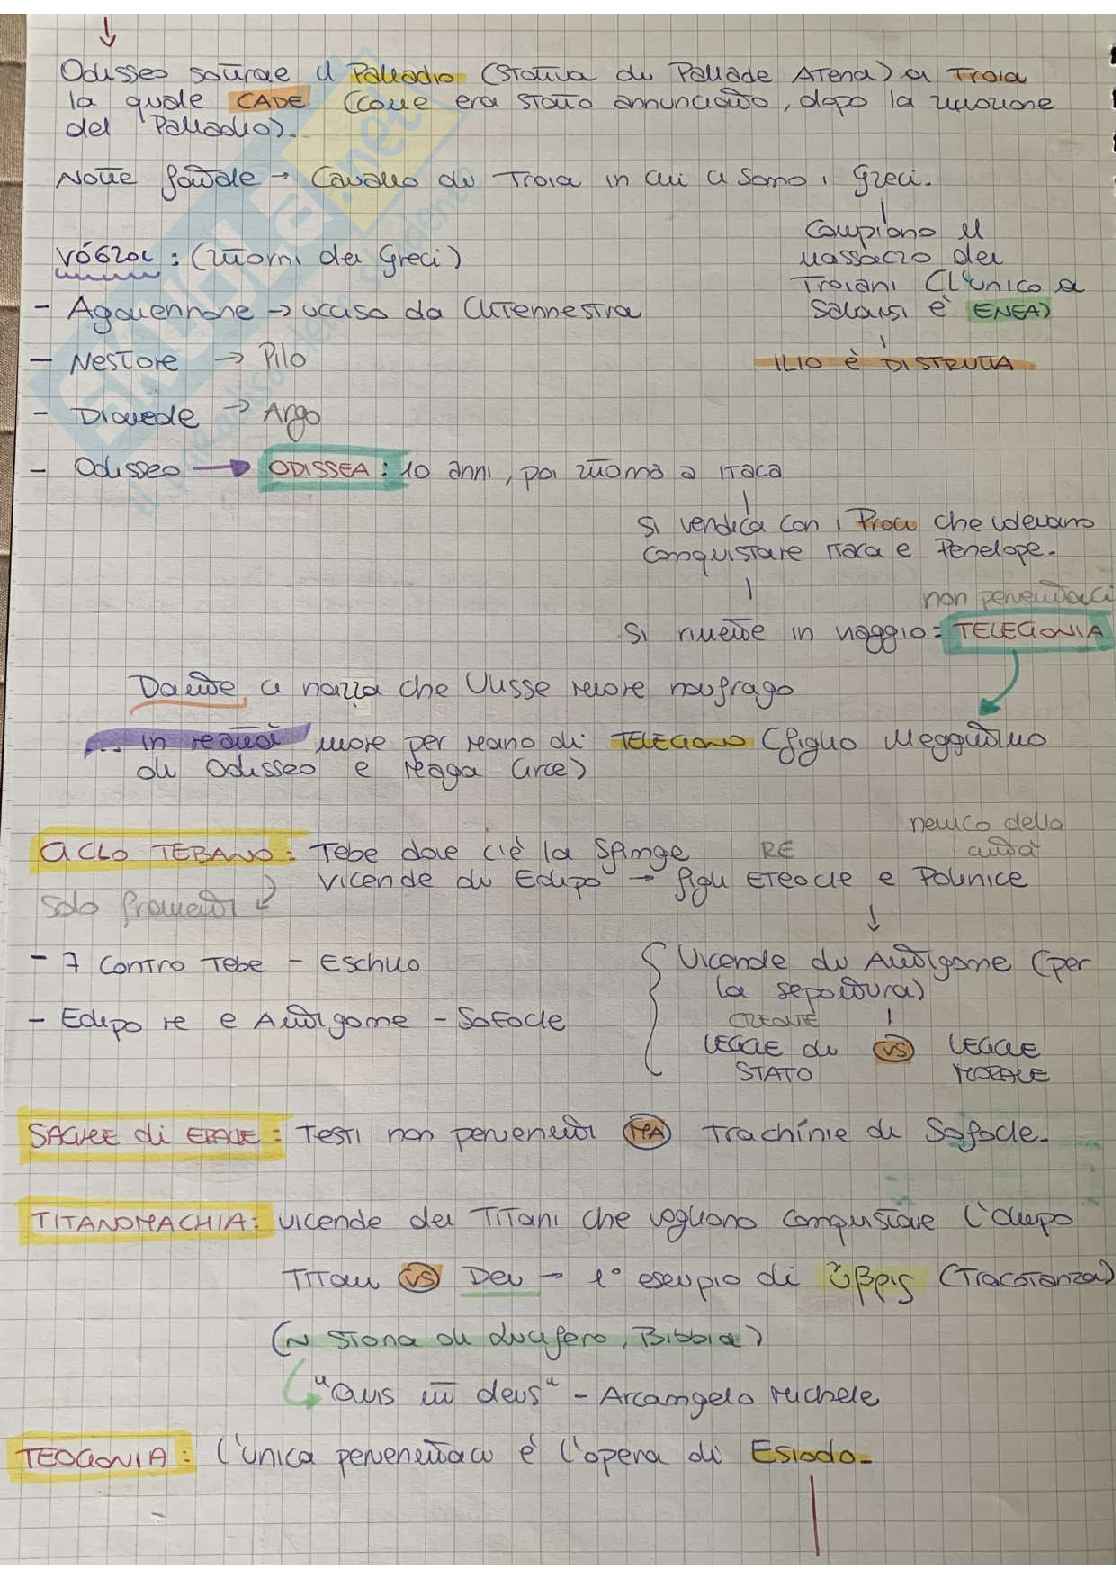 Odisseo sottrae il Palladio (statua di Pallade Atena) a Troia
la quale CADE (come era stato annunciato, dopo la rimozione
del Palladio).
Notte fatale → Cavallo di Troia in cui ci sono i greci.
Compiono il
massacro dei
Troiani (L'unico a
salvarsi è ENEA)
ILIO è DISTRUTTA
νόστοι : (ritorni dei greci)
- Agamennone → ucciso da Clitennestra
- Nestore → Pilo
- Diomede → Argo
- Odisseo → ODISSEA : 10 anni, poi ritorna a Itaca
si vendica con i Proci che volevano
conquistare Itaca e Penelope.
non pervenutaci
si rimette in viaggio = TELEGONIA
Dante ci narra che Ulisse muore naufrago
... in realtà muore per mano di TELEGONO (figlio illegittimo
di Odisseo e maga Circe)
nemico della
CICLO TEBANO : Tebe dove c'è la Sfinge RE città
vicende di Edipo → figli Eteocle e Polinice
solo frammenti
- 7 contro Tebe - Eschilo
- Edipo re e Antigone - Sofocle
Vicende di Antigone (per
la sepoltura)
CREONTE
LEGGE di VS LEGGE
STATO MORALE
SAGHE di ERACLE : Testi non pervenuti MA Trachinie di Sofocle.
TITANOMACHIA : vicende dei Titani che vogliono conquistare l'Olimpo
Titani VS Dei → 1° esempio di ὕβρις (Tracotanza)
(~ storia di Lucifero, Bibbia)
"Quis ut deus" - Arcangelo Michele
TEOGONIA : L'unica pervenutaci è l'opera di Esiodo.